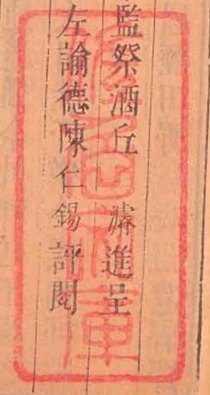 監祭酒丘濬進呈
左諭德陳仁錫評閱